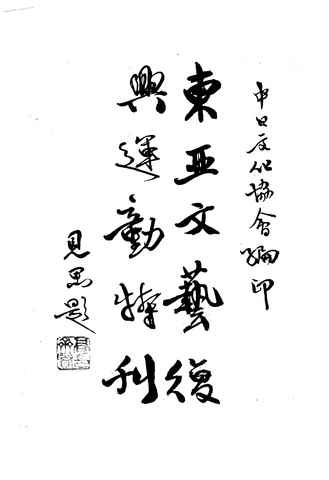 中日文化協會編印
東亞文藝復
興運動特刊
見思題